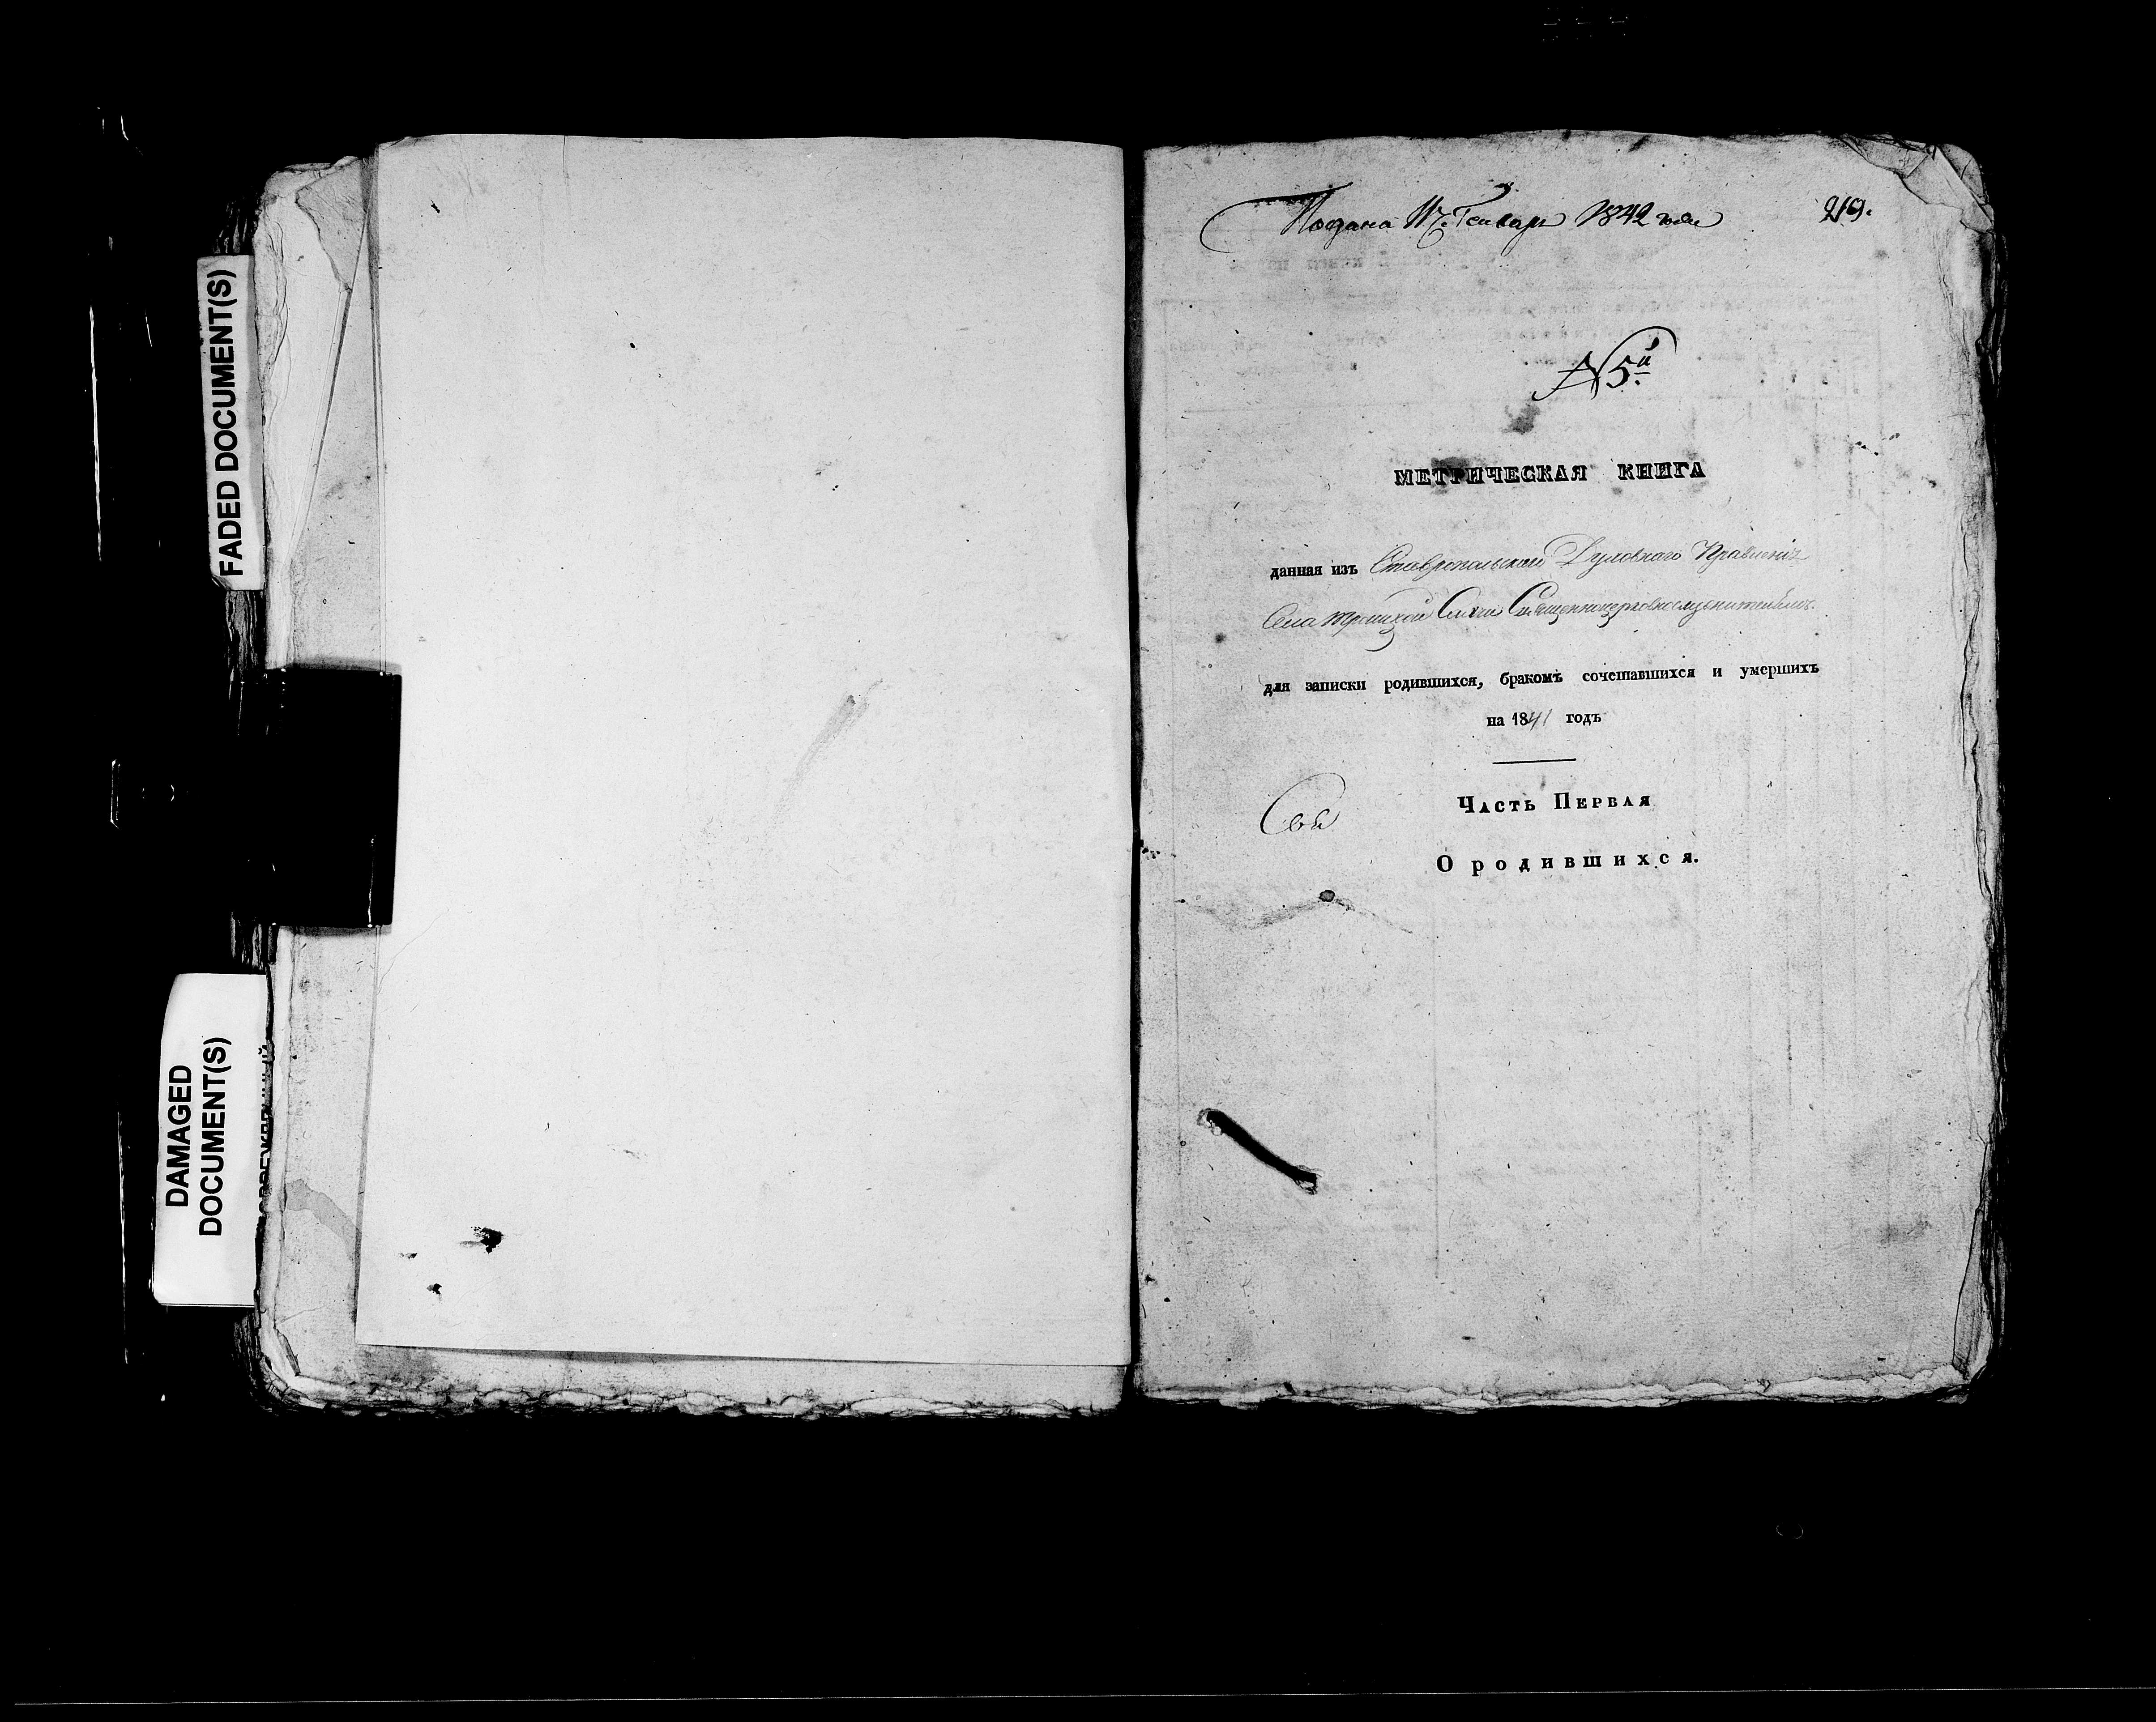 FADED DOCUMENT(S)
DAMAGED
DOCUMENT(S)
Подана Генваря 1842 года
219.
№ 5й
МЕТРИЧЕСКАЯ КНИГА
данная изъ Ставропольскаго Духовнаго Правленія
Села Троицкой Священноцерковнослужителямъ
для записки родившихся, бракомъ сочетавшихся и умершихъ
на 1841 годъ
Часть Первая
О родившихся.